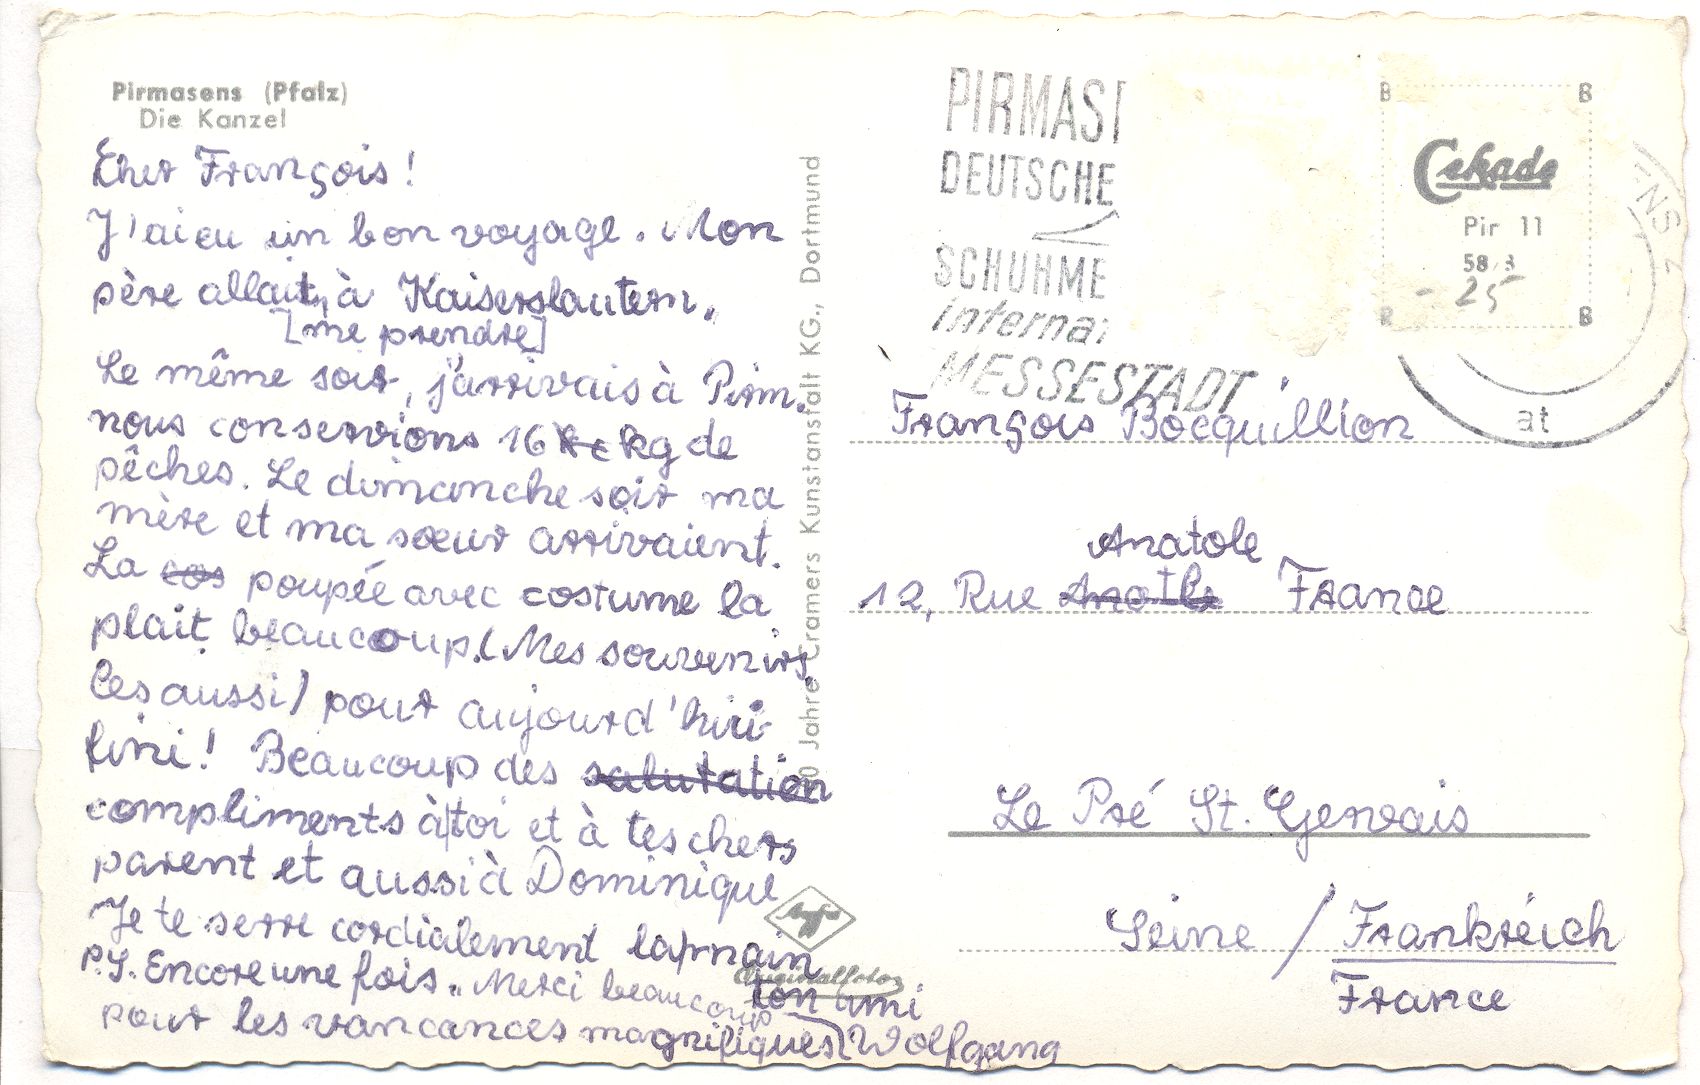 Pirmasens (Pfalz)
Die Kanzel
Cher François !
J'ai eu un bon voyage. Mon
père allait, à Kaiserslautern.
[me prendre]
Le même soir, j'arrivais à Pirm.
nous conservions 16 kg de
pêches. Le dimanche soir ma
mère et ma sœur arrivaient.
La cos poupée avec costume la
plait beaucoup. (Mes souvenirs,
les aussi) pour aujourd'hiri
fini! Beaucoup des salutation
compliments à toi et à tes chers
parent et aussi à Dominique
Je te serre cordialement la main
ton ami
Wolfgang
P.S. Encore une fois. Merci beaucoup
pour les vancances magnifiques
Jahre Cramers Kunstanstalt KG., Dortmund
Agfa
Originalfoto
PIRMAS
DEUTSCHE
SCHUHME
interna
MESSESTADT
B B
Cekade
Pir 11
58 3
- 25
B B
NS 2
at
François Bocquillion
Anatole
12, Rue France
Le Pré St. Gervais
Seine / Frankreich
France